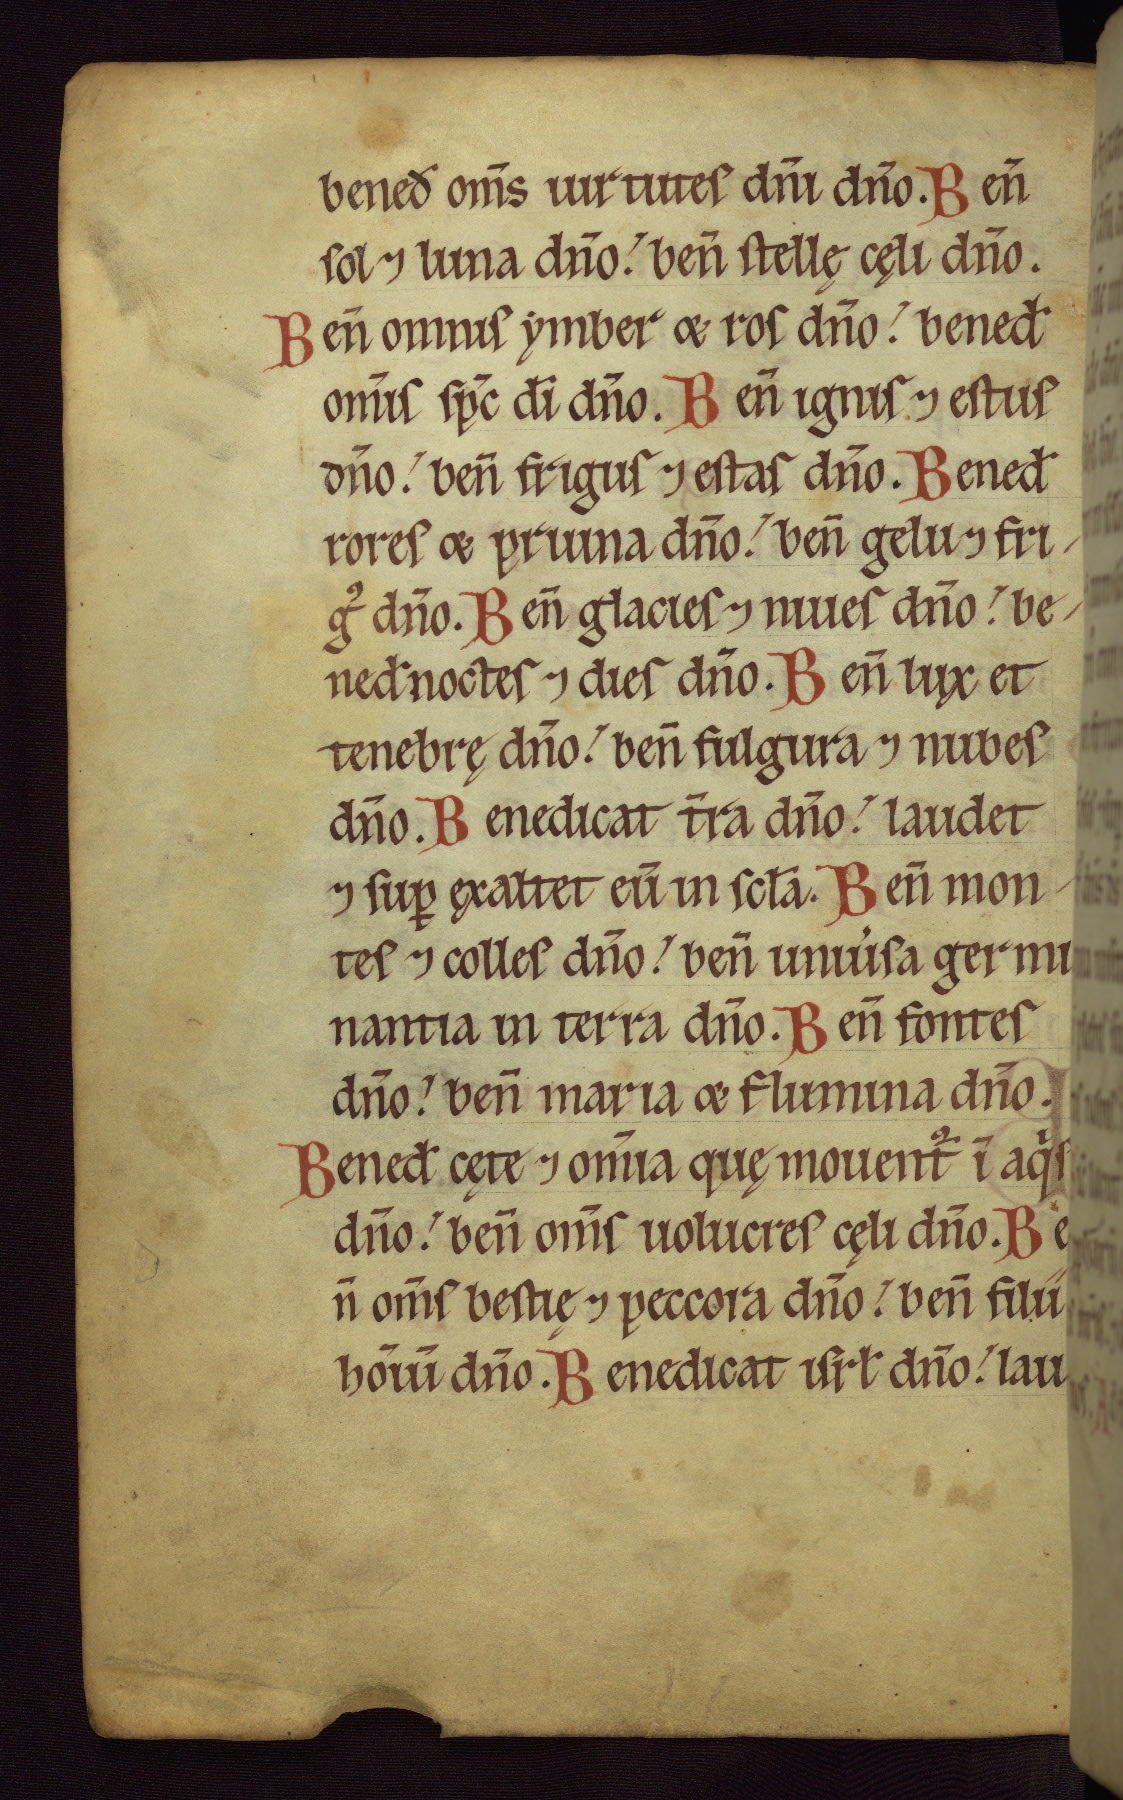 bened̄ om̄s uirtutes dn̄i dn̄o. Ben̄
sol ⁊ luna dn̄o! ben̄ stellę cęli dn̄o.
Ben̄ omnis ẏmber & ros dn̄o! bened̄
om̄is sp̄c dī dn̄o. Ben̄ ignis ⁊ estus
dn̄o! ben̄ frigus ⁊ estas dn̄o. Bened̄
rores & pruina dn̄o! ben̄ gelu ⁊ fri-
gꝰ dn̄o. Ben̄ glacies ⁊ niues dn̄o! be-
ned̄ noctes ⁊ dies dn̄o. Ben̄ lux et
tenebrę dn̄o! ben̄ fulgura ⁊ nubes
dn̄o. Benedicat t̄ra dn̄o! laudet
⁊ suꝑ ęxaltet eū in scl̄a. Ben̄ mon-
tes ⁊ colles dn̄o! ben̄ uniu̓sa germi
nantia in terra dn̄o. Ben̄ fontes
dn̄o! ben̄ maria & flumina dn̄o.
Bened̄ cęte ⁊ om̄ia quę mouent᷑ ī aqͥs
dn̄o! ben̄ om̄s uolucres cęli dn̄o. Be
n̄ om̄s bestię ⁊ peccora dn̄o! ben̄ filii
hōiū dn̄o. Benedicat isrl̄ dn̄o! lau